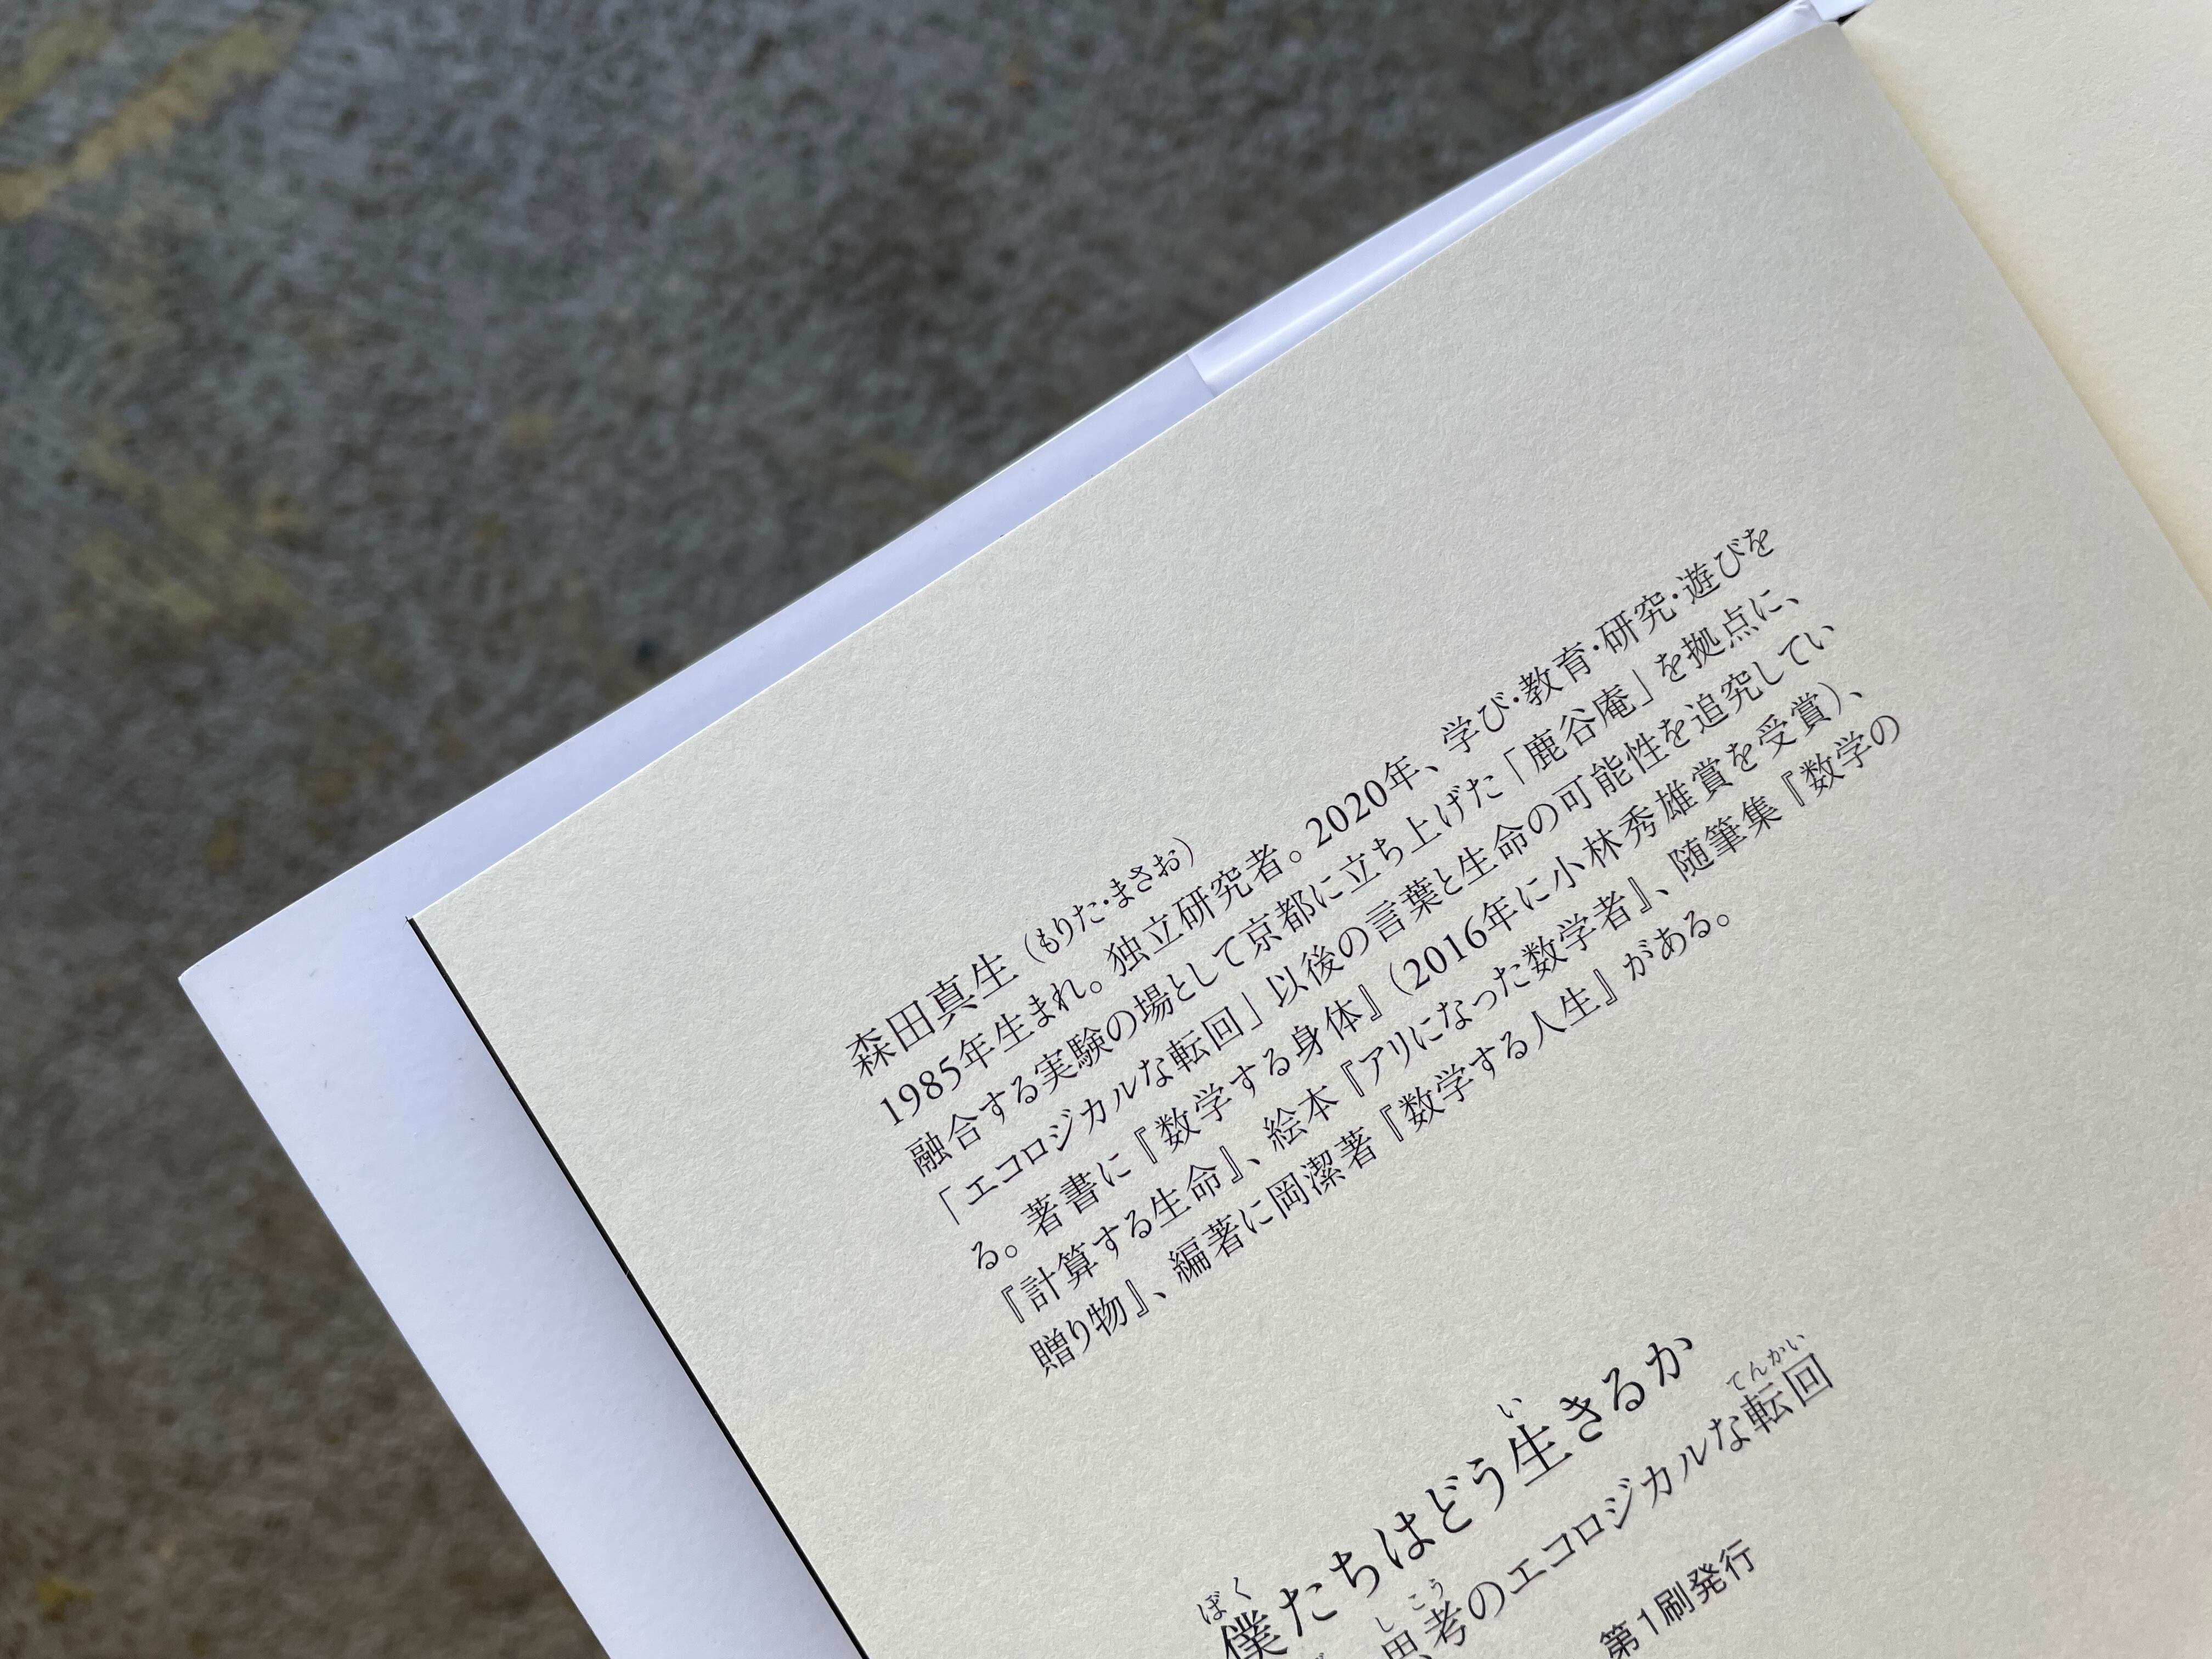 森田真生（もりた・まさお）
1985年生まれ。独立研究者。2020年、学び・教育・研究・遊びを
融合する実験の場として京都に立ち上げた「鹿谷庵」を拠点に、
「エコロジカルな転回」以後の言葉と生命の可能性を追究してい
る。著書に『数学する身体』（2016年に小林秀雄賞を受賞）、
『計算する生命』、絵本『アリになった数学者』、随筆集『数学の
贈り物』、編著に岡潔著『数学する人生』がある。
ぼく い
僕たちはどう生きるか
しこう てんかい
思考のエコロジカルな転回
第1刷発行